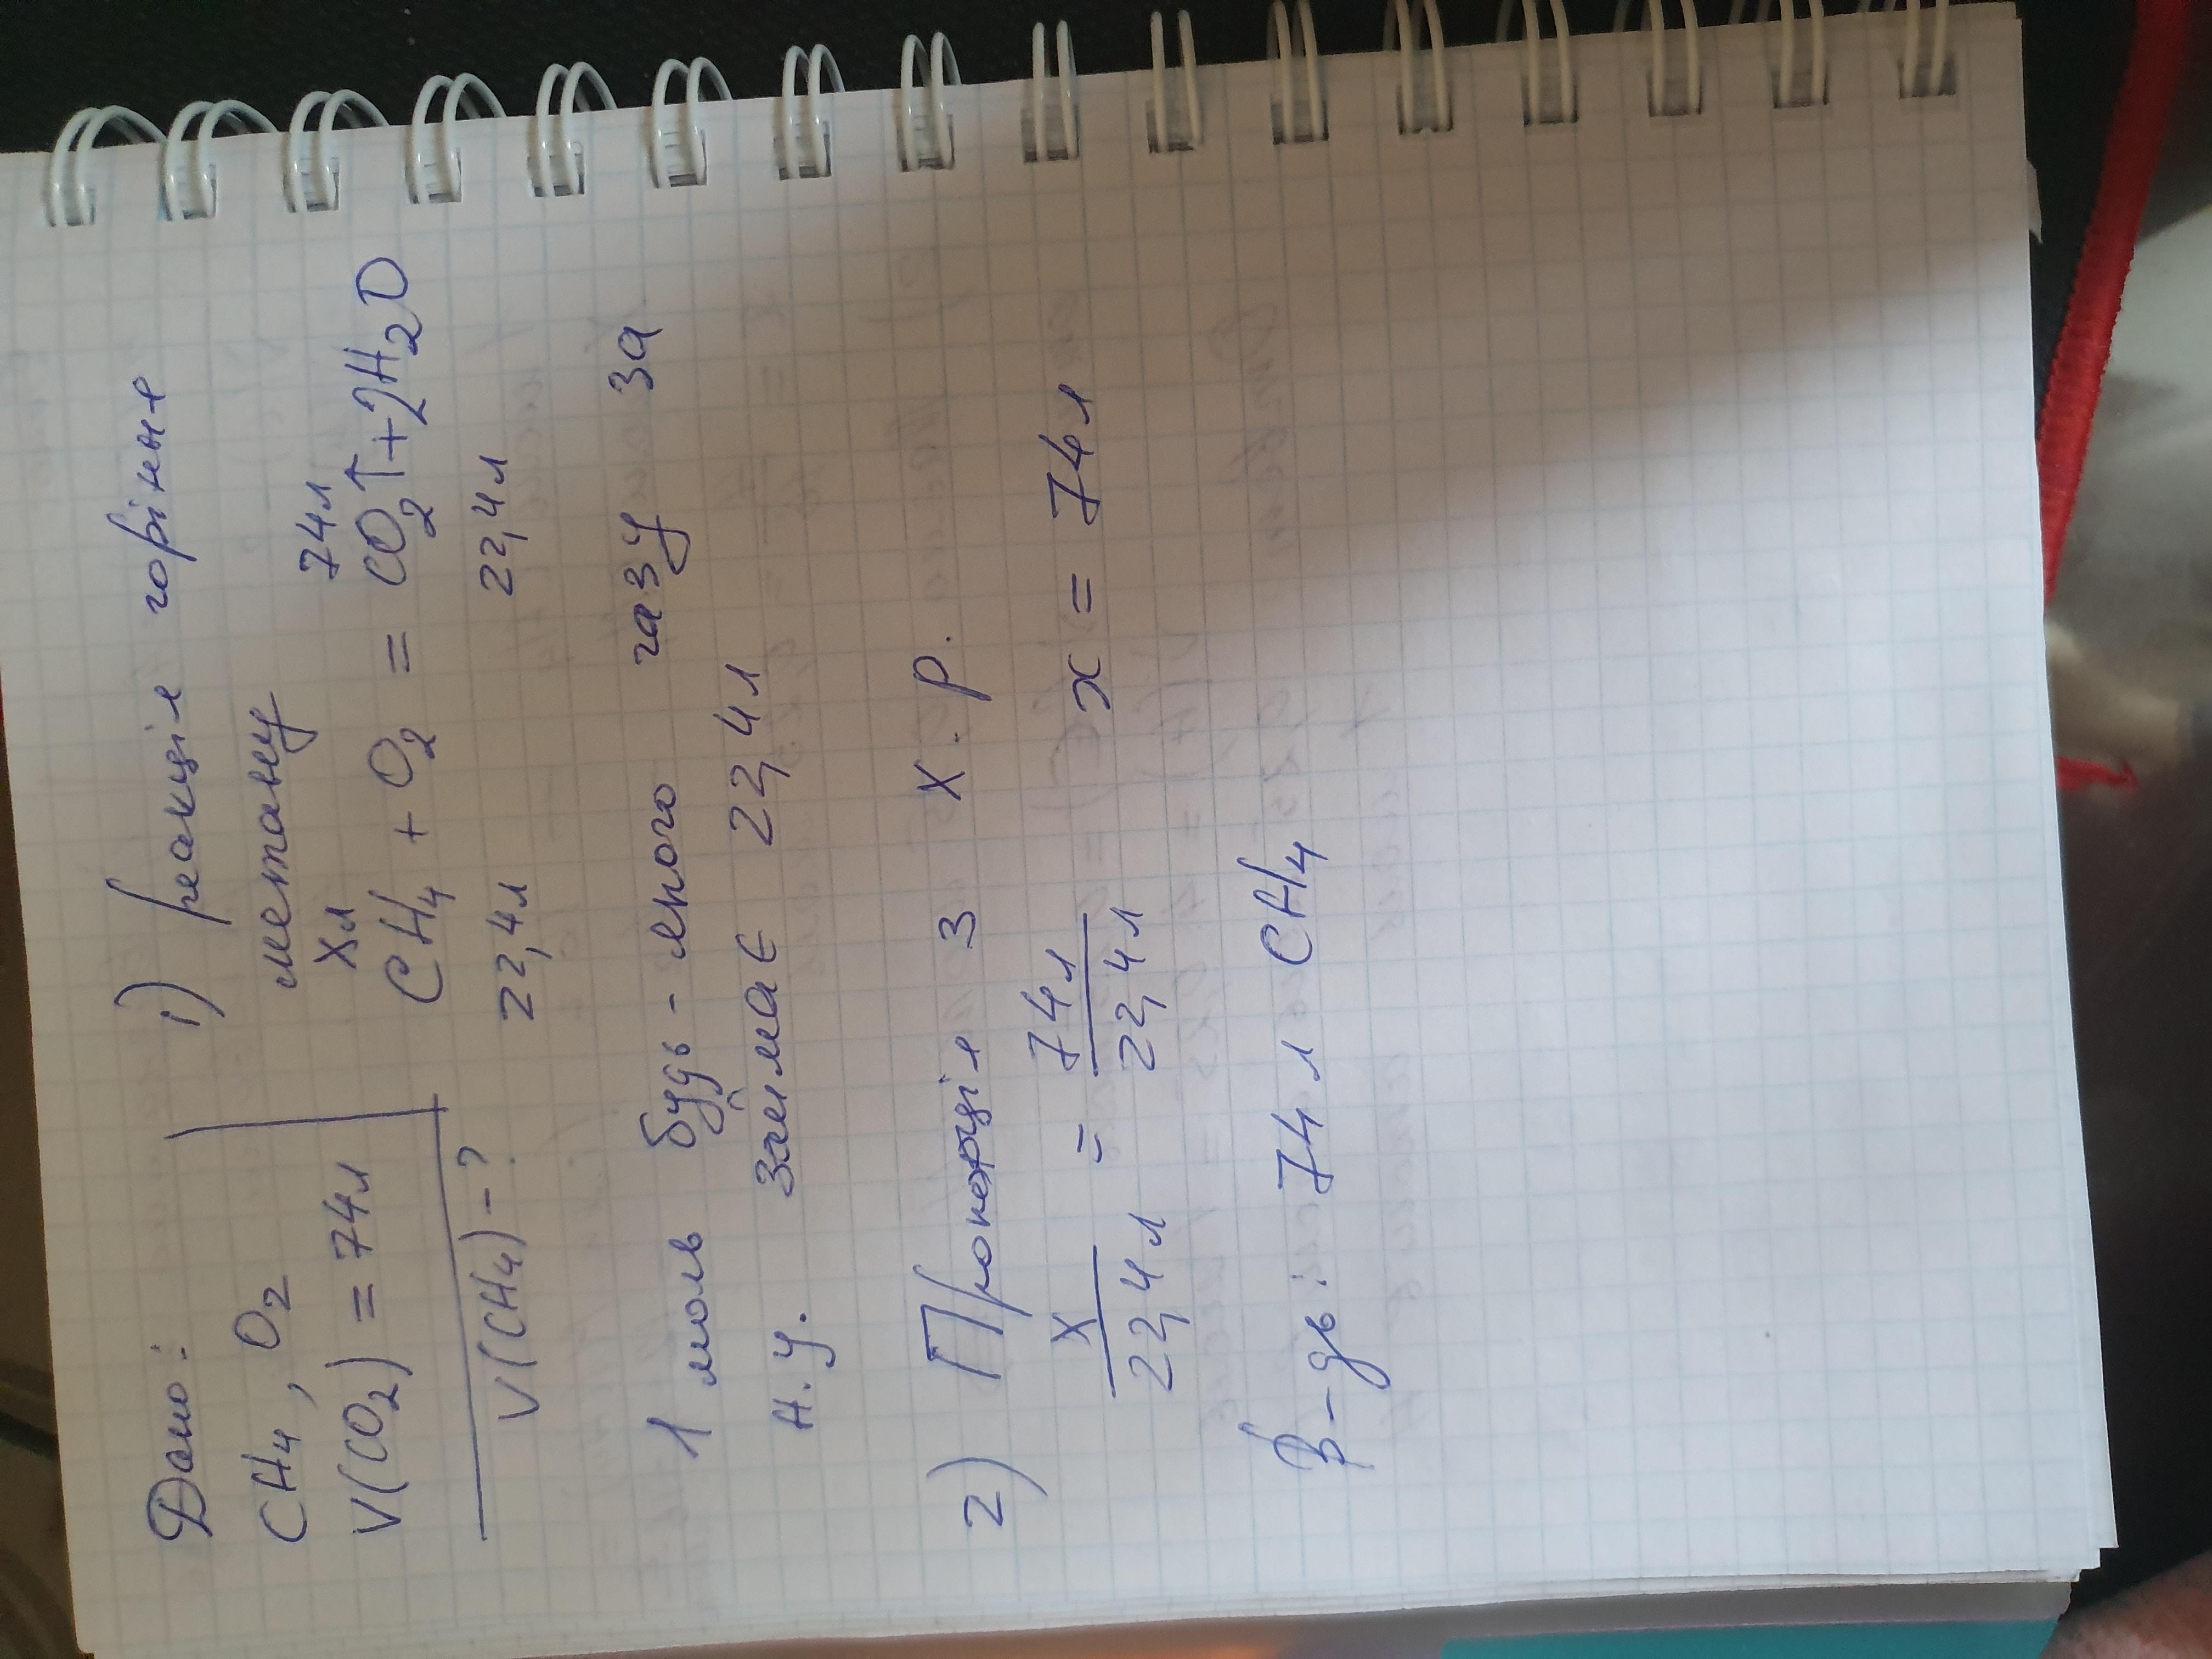 Дано:
CH4, O2
V(CO2) = 74л
V(CH4) - ?
1) реакція горіння
метану
xл 74л
CH4 + O2 = CO2↑ + 2H2O
22,4л 22,4л
1 моль будь-якого газу за
н.у. займає 22,4л
2) Пропорція з х.р.
x/22,4л = 74л/22,4л x = 74л
В-дь: 74л CH4